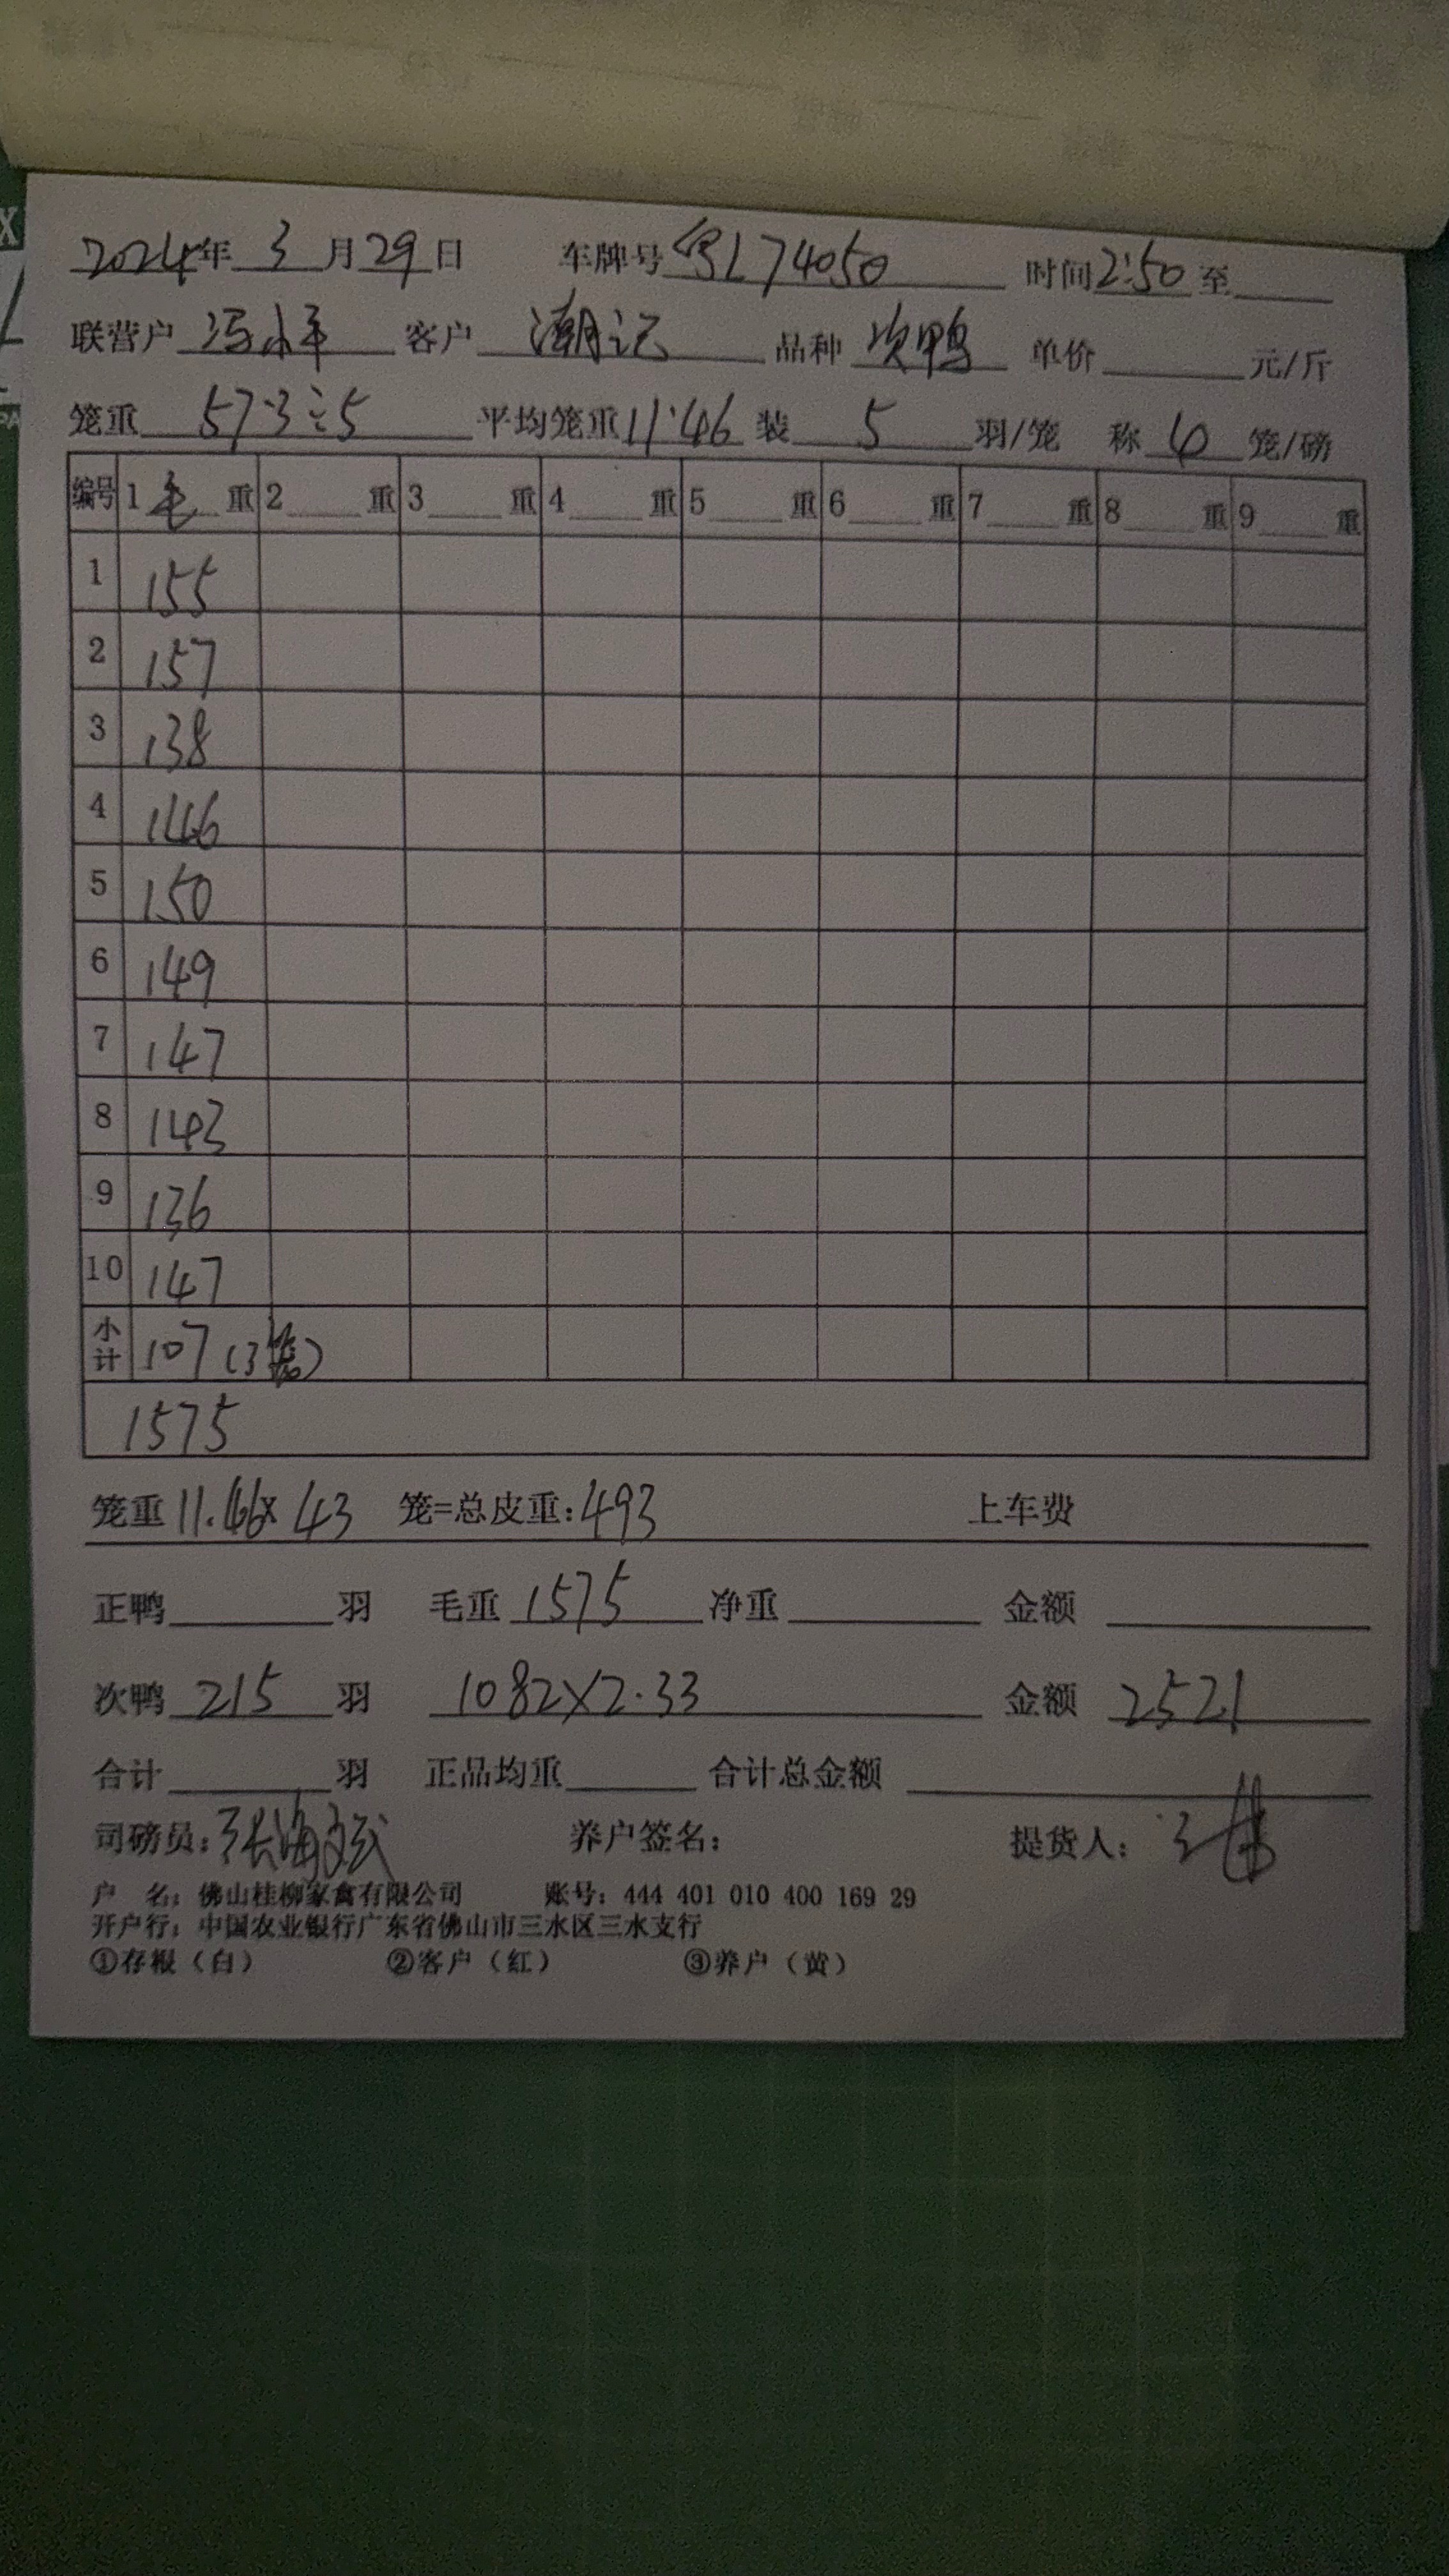 2024年 3 月 29 日 车牌号 粤L74050 时间 2:50 至
联营户 冯水平 客户 潮记 品种 次鸭 单价 元/斤
笼重 57.3÷5 平均笼重 11.46 装 5 羽/笼 称 4 笼/磅
编号 1 毛 重 2 重 3 重 4 重 5 重 6 重 7 重 8 重 9 重
1 155
2 157
3 138
4 146
5 150
6 149
7 147
8 143
9 136
10 147
小计 107 (3笼)
1575
笼重 11.46× 43 笼=总皮重:493 上车费
正鸭 羽 毛重 1575 净重 金额
次鸭 215 羽 1082×2.33 金额 2521
合计 羽 正品均重 合计总金额
司磅员: 养户签名: 提货人:
户 名: 佛山桂柳家禽有限公司 账号: 444 401 010 400 169 29
开户行: 中国农业银行广东省佛山市三水区三水支行
①存根(白) ②客户(红) ③养户(黄)